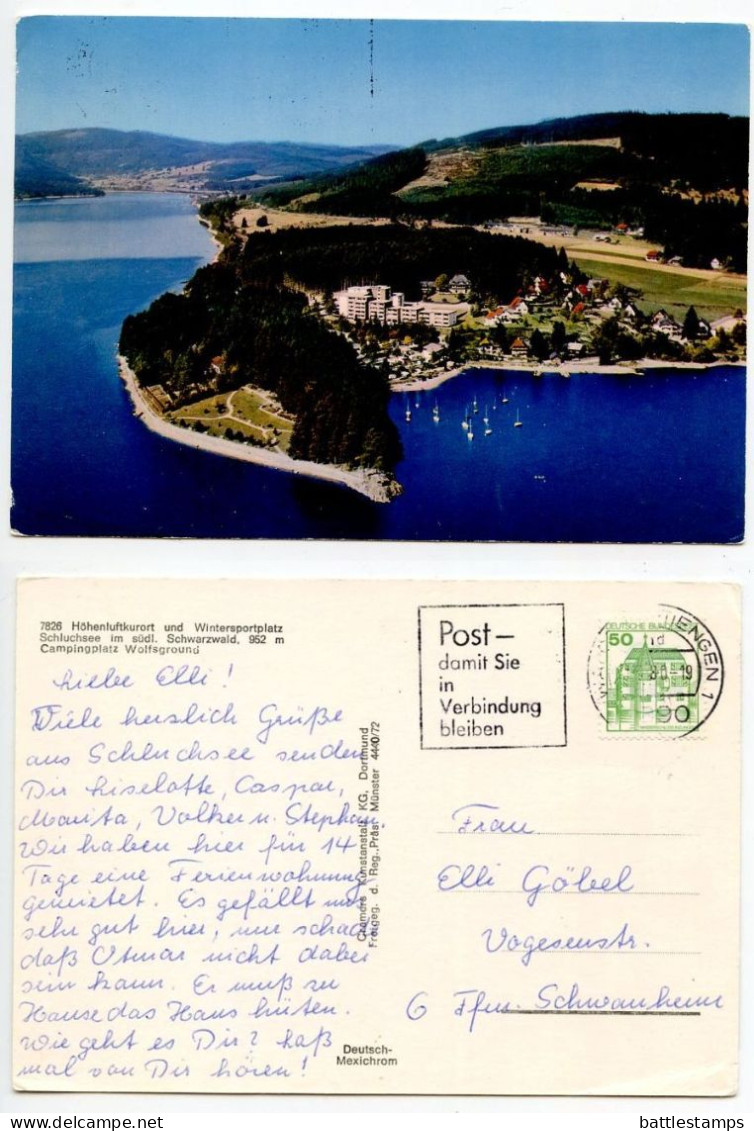 7826 Höhenluftkurort und Wintersportplatz
Schluchsee im südl. Schwarzwald, 952 m
Campingplatz Wolfsgrund
Liebe Elli!
Viele herzlich Grüße
aus Schluchsee senden
Dir Liselotte, Caspar,
Marita, Volker u. Stephan.
Wir haben hier für 14
Tage eine Ferienwohnung
gemietet. Es gefällt uns
sehr gut hier, nur schade
daß Otmar nicht dabei
sein kann. Er muß zu
Hause das Haus hüten.
Wie geht es Dir? Laß
mal von Dir hören!
Cramers Kunstanstalt KG, Dortmund
Freigeg. d. Reg.-Präs. Münster 4440/72
Deutsch-
Mexichrom
Post-
damit Sie
in
Verbindung
bleiben
DEUTSCHE BUNDESPOST
50
TIENGEN 1
80.-19
790
Frau
Elli Göbel
Vogesenstr.
6 Ffm. Schwanheim
battlestamps